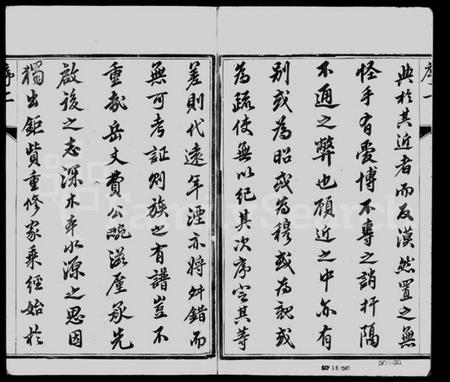 序一
典於其近者而反漠然置之無
怪乎有愛博不專之誚扞隔
不通之弊也顧近之中亦有
別或為昭或為穆或為親或
為疏使無以紀其次序定其等
差則代遠年湮亦將舛錯而
無可考証則族之有譜豈不
重哉岳丈費公畹滋厪承先
啟後之志深木本水源之思因
獨出鉅貲重修家乘經始於
序二
FamilySearch
SEP 16